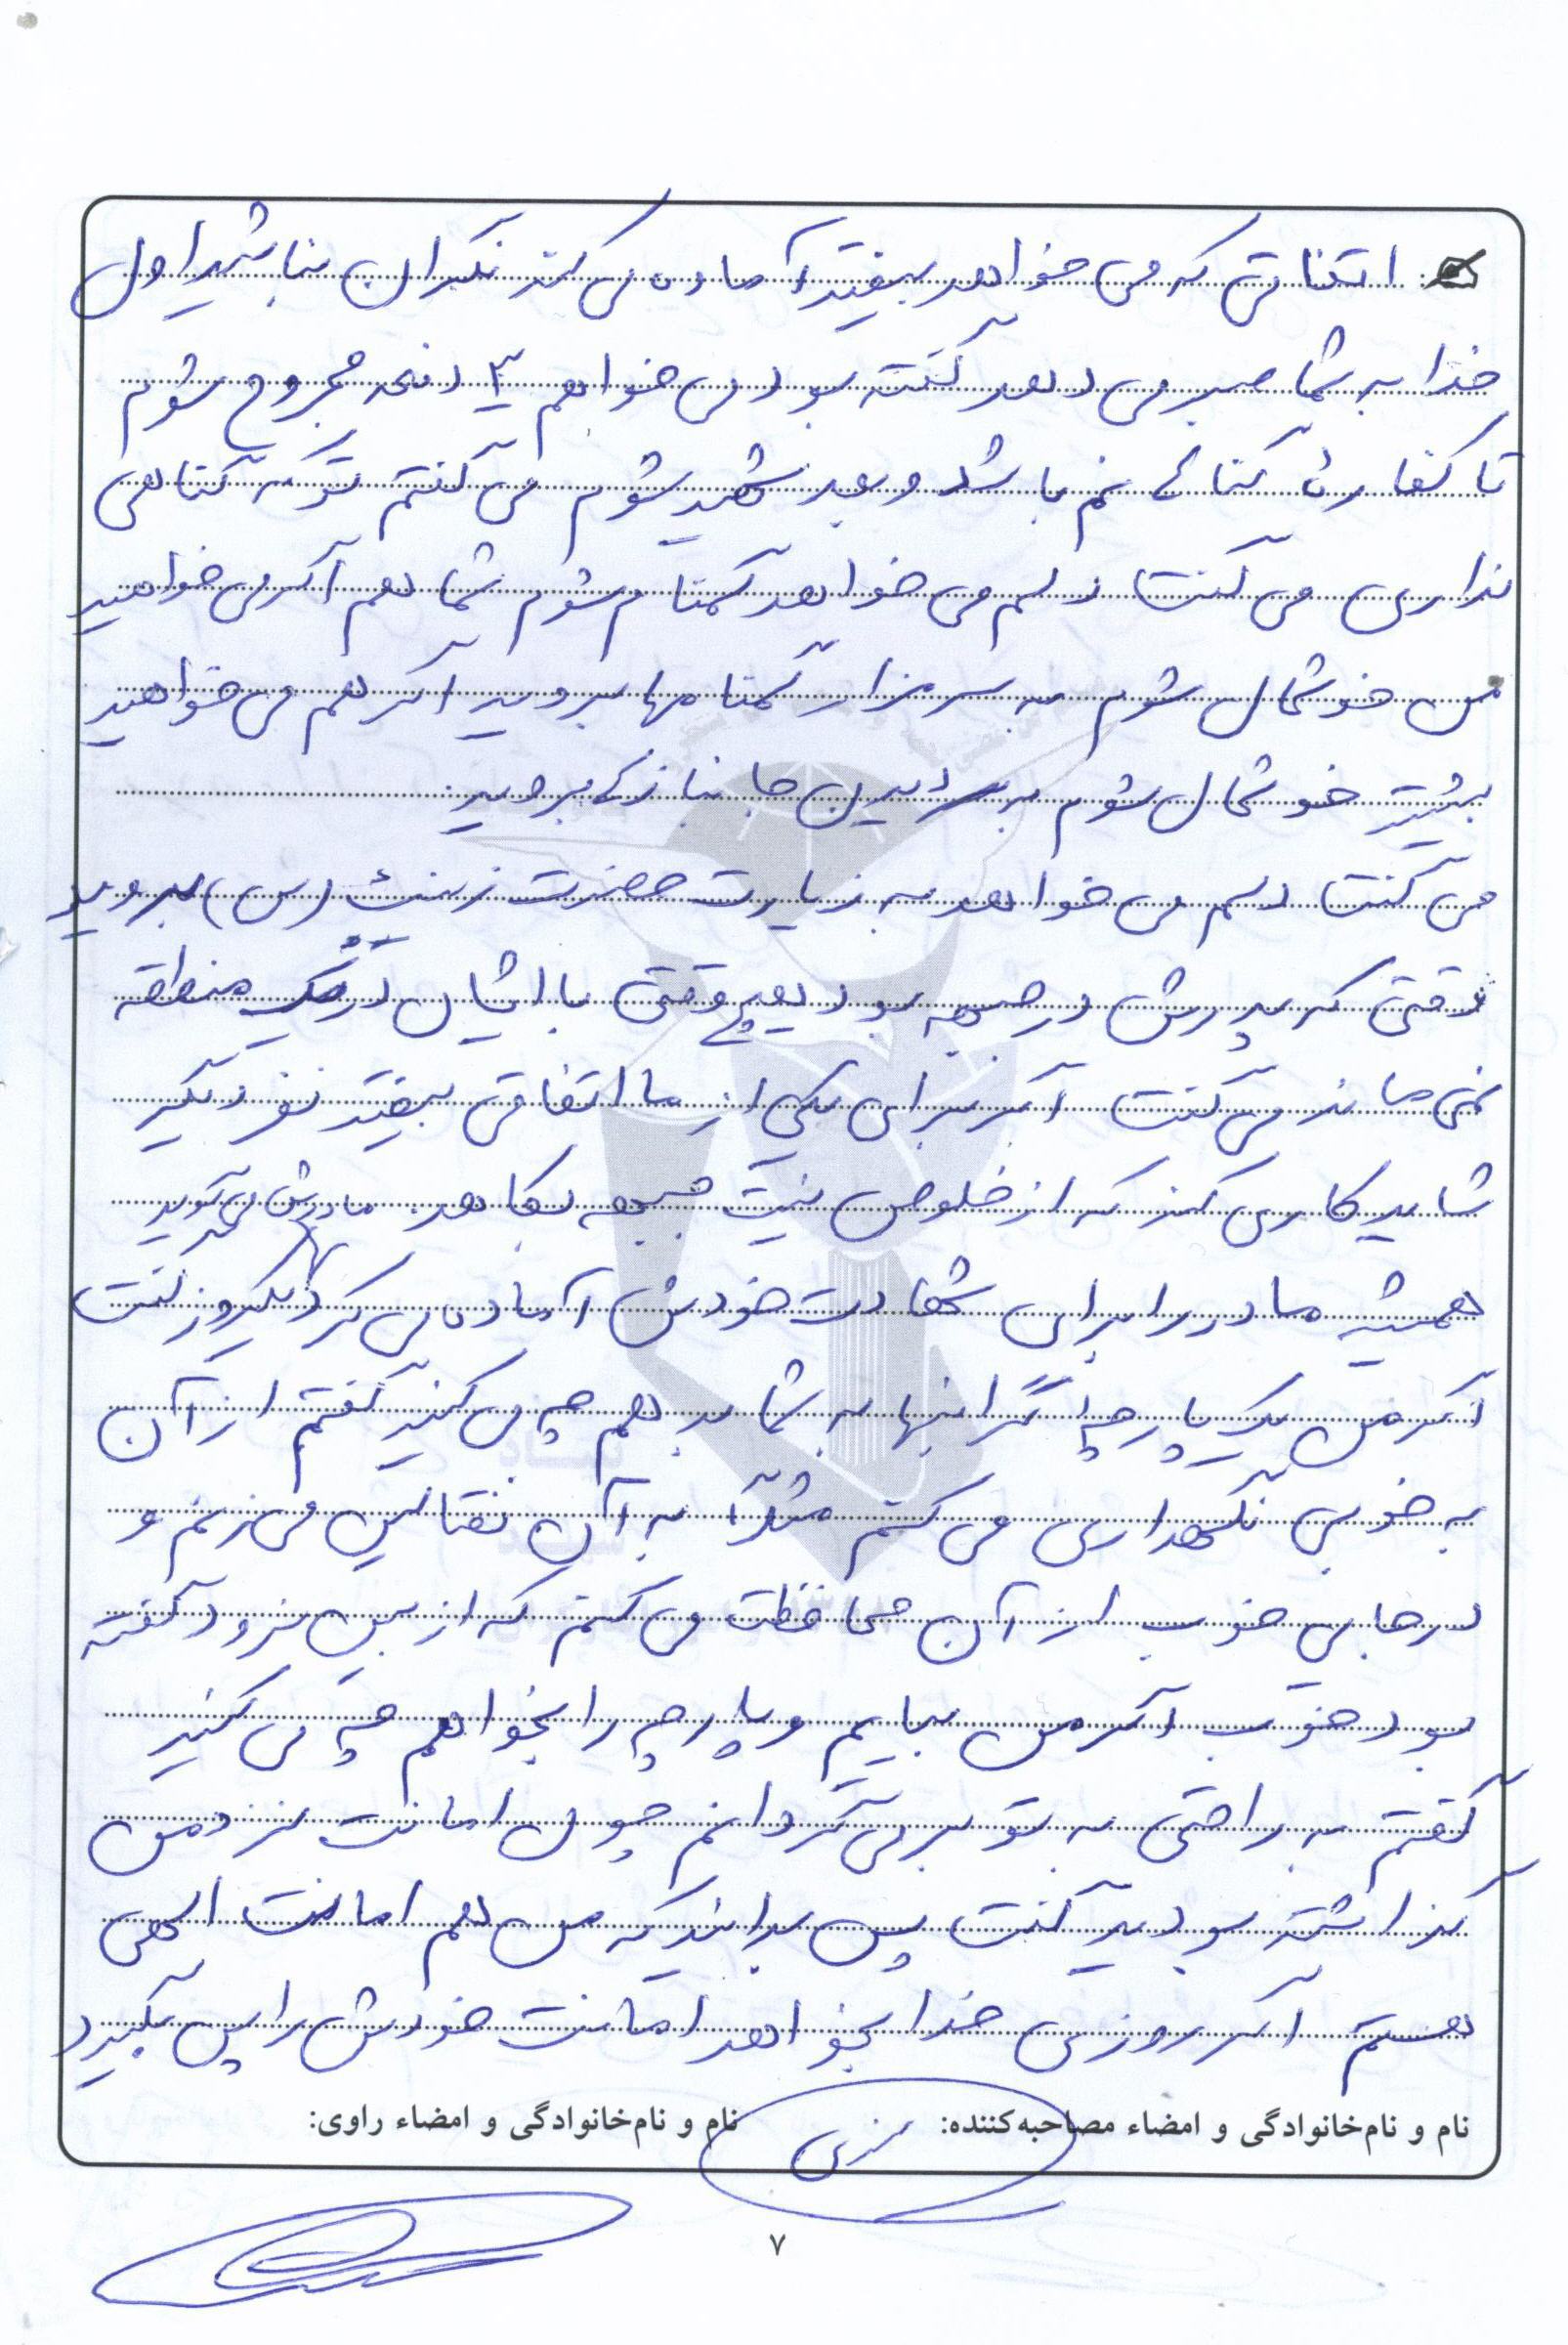 اتفاقی که می خواهد بیفتد آماده می کند نگران نباشید اول
خدا به شما صبر می دهد گفته بود می خواهم ۳ دفعه مجروح شوم
تا کفاره گناهانم باشد و بعد شهید شوم می گفتم تو که گناهی
نداری می گفت دلم می خواهد گمنام شوم شما هم اگر می خواهید
من خوشحال شوم به سر مزار گمنامها بروید اگر هم می خواهید
بیشتر خوشحال شوم به دیدن جانبازان بروید.
می گفت دلم می خواهد به زیارت حضرت زینب (س) بروید
وقتی که پدرش در جبهه بود هیچ وقتی با ایشان در یک منطقه
نمی ماند می گفت اگر برای یکی از ما اتفاقی بیفتد نفر دیگر
شاید کاری کند که از خلوص نیت جبهه بکاهد. مادرش می گوید
همیشه مادر را برای شهادت خودش آماده می کرد یکروز گفت
اگر من یک پارچه گرانبها به شما بدهم چه می کنید گفتم از آن
به خوبی نگهداری می کنم مثلاً به آن نفتالین می زنم و
در جایی خوب از آن محافظت می کنم که از بین نرود گفته
بود خوب اگر من بیایم و پارچه را بخواهم چه می کنید
گفتم به راحتی به تو بر می گردانم چون امانت نزد من
گذاشته بودید گفت پس بدانید که من هم امانت الهی
هستم اگر روزی خدا بخواهد امانت خودش را پس بگیرد
نام و نام‌خانوادگی و امضاء مصاحبه‌کننده: نام و نام‌خانوادگی و امضاء راوی:
۷